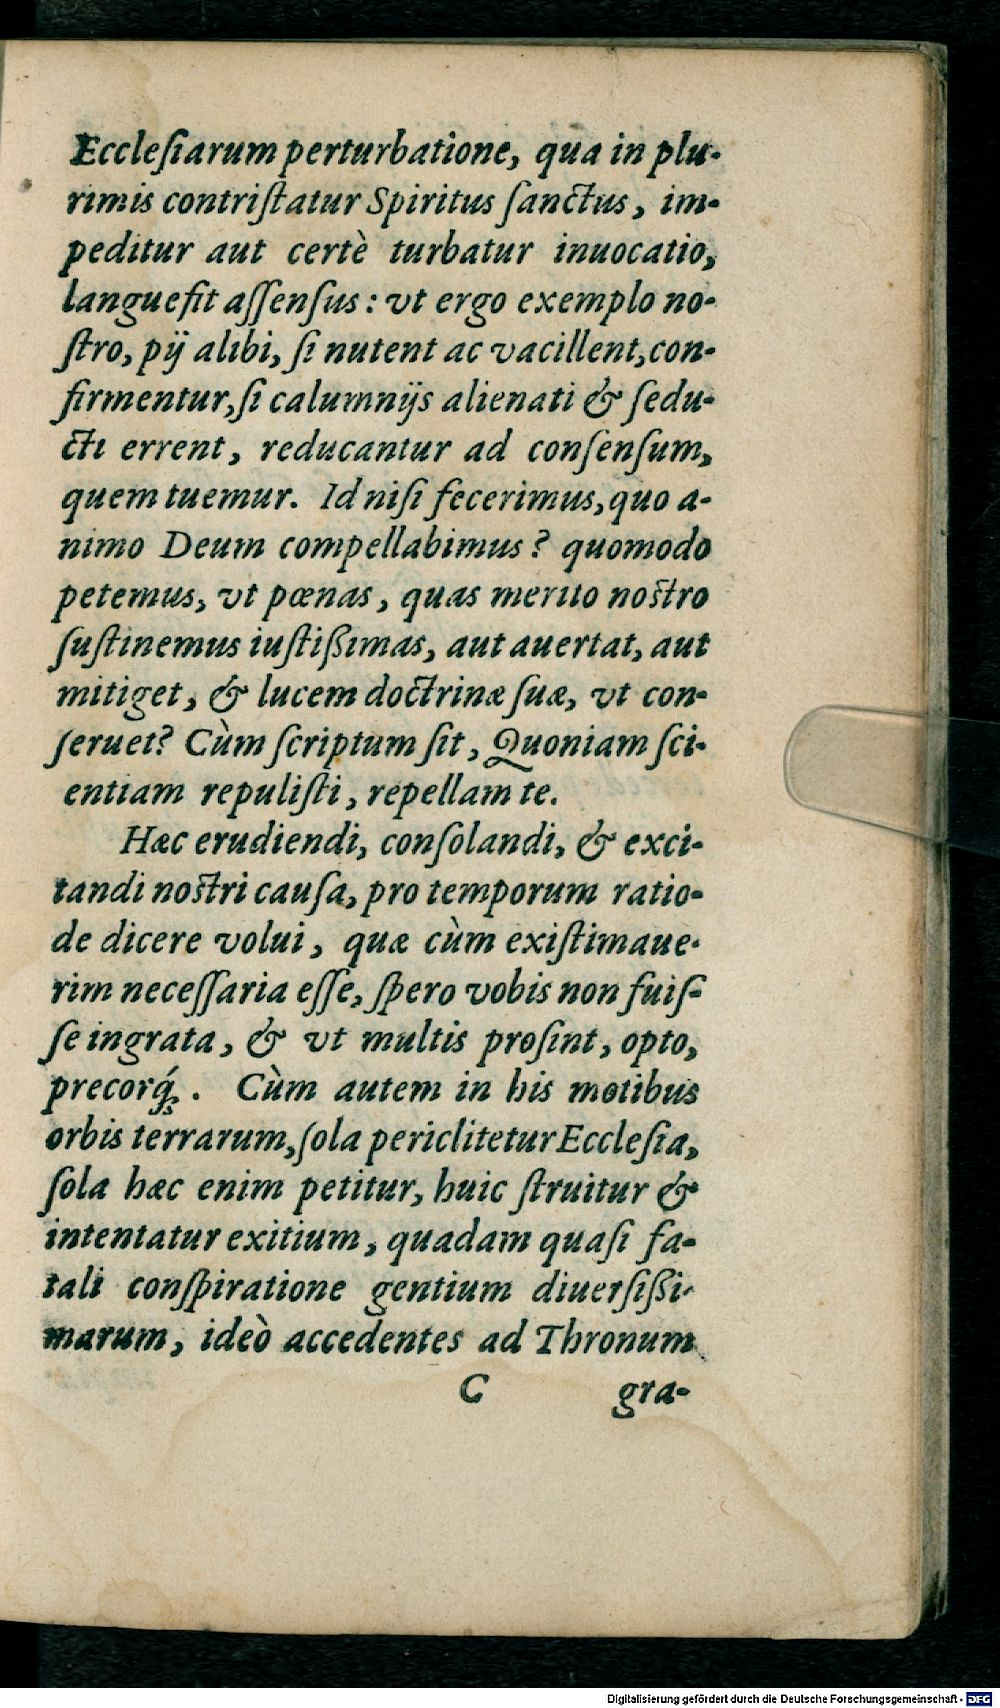 Eccleſiarum perturbatione, qua in plu-
rimis contriſtatur Spiritus ſanctus, im-
peditur aut certè turbatur inuocatio,
languefit aſſenſus: vt ergo exemplo no-
ſtro, pij alibi, ſi nutent ac vacillent, con-
firmentur, ſi calumnijs alienati & ſedu-
cti errent, reducantur ad conſenſum,
quem tuemur. Id niſi fecerimus, quo a-
nimo Deum compellabimus? quomodo
petemus, vt pœnas, quas merito noſtro
ſuſtinemus iuſtißimas, aut auertat, aut
mitiget, & lucem doctrinæ ſuæ, vt con-
ſeruet? Cùm ſcriptum ſit, Quoniam ſci-
entiam repuliſti, repellam te.
Hæc erudiendi, conſolandi, & exci-
tandi noſtri cauſa, pro temporum ratio-
de dicere volui, quæ cùm exiſtimaue-
rim neceſſaria eſſe, ſpero vobis non fuiſ-
ſe ingrata, & vt multis proſint, opto,
precorq́;. Cùm autem in his motibus
orbis terrarum, ſola periclitetur Eccleſia,
ſola hæc enim petitur, huic ſtruitur &
intentatur exitium, quadam quaſi fa-
tali conſpiratione gentium diuerſißi-
marum, ideò accedentes ad Thronum
C gra-
Digitalisierung gefördert durch die Deutsche Forschungsgemeinschaft - DFG